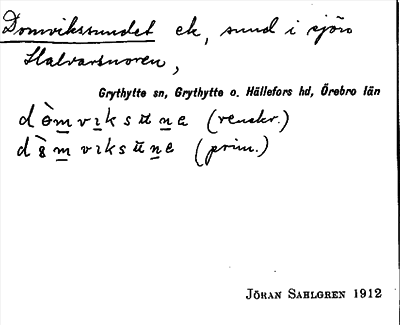 Domvikssundet ek, sund i sjön
Halvarsnoren,
Grythytte sn, Grythytte o. Hällefors hd, Örebro län
(renskr.)
(prim.)
JÖRAN SAHLGREN 1912